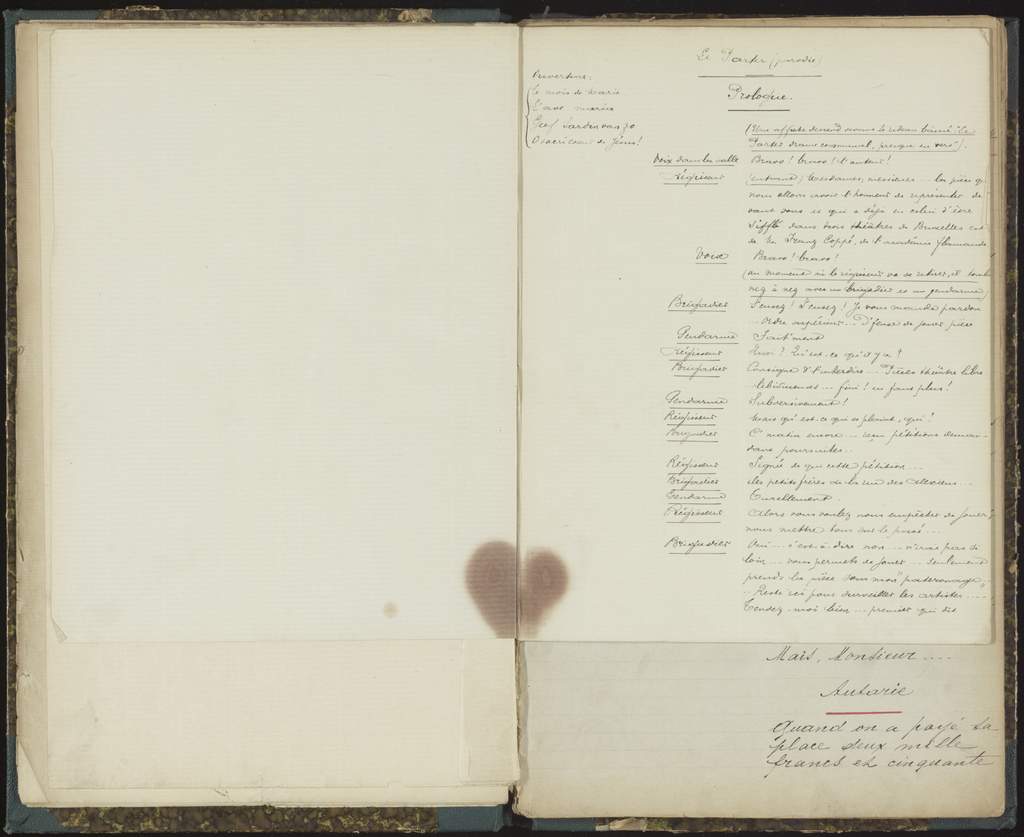 Le Pater (parodie)
Prologue.
Ouverture:
Le mois de Marie
L'ave maria
Gref vardenvango
O sacré cœur de Jésus!
(Une affiche descend devant le rideau baissé: "Le
Pater drame communal, presque en vers").
Voix dans la salle Bravo! bravo! l'auteur!
Régisseur (entrant) Mesdames, messieurs... la pièce q
nous allons avoir l'honneur de représenter de
vant vous et qui a déjà eu celui d'être
sifflé dans trois théâtres de Bruxelles est
de Mr Franz Coppé, de l'académie flamande
Voix Bravo! bravo!
(au moment où le régisseur va se retirer, il tombe
nez à nez avec un brigadier et un gendarme)
Brigadier S'cusez! S'cusez! Je vous mande pardon
... Ordre supérieur... D'fense de jouer pièce
Gendarme Saut'ment
Régisseur Quoi? Qu'est-ce qu'il y a?
Brigadier Consigne d'l'interdire... Pièces théâtre libre
... fini! en faut plus!
Gendarme Subversivement!
Régisseur Mais qui est-ce qui se plaint, qui?
Brigadier C'matin encore... reçu pétitions deman-
dant poursuites.
Régisseur Signée de qui cette pétition...
Brigadier des petits frères de la rue des Alexiens...
Gendarme Turellement.
Régisseur Alors vous voulez nous empêcher de jouer,
nous mettre tous sur le pavé...
Brigadier Oui... c'est-à-dire non... n'irai pas si
loin... vous permets de jouer... seulement
prends la pièce sous mon "patronnage"
... Reste ici pour surveiller les artistes...
Tendez-moi bien... premier qui dit
Mais, Monsieur....
Autorie
Quand on a payé sa
place deux mille
francs et cinquante